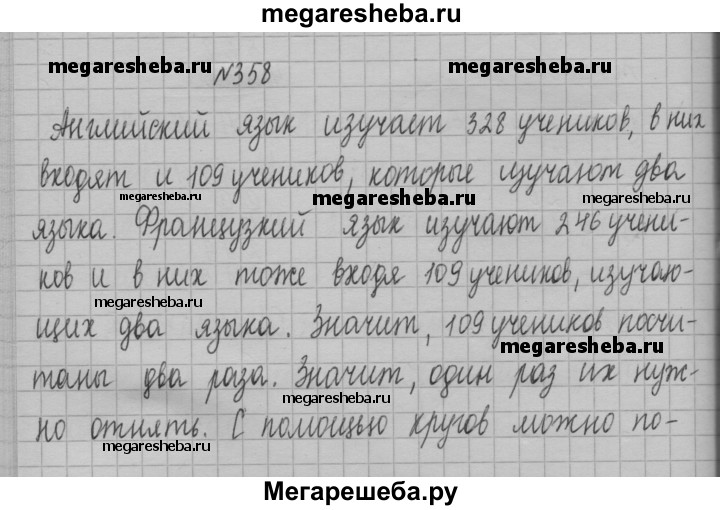 megaresheba.ru
megaresheba.ru megaresheba.ru
№358
Английский язык изучает 328 учеников, в них
входят и 109 учеников, которые изучают два
megaresheba.ru megaresheba.ru megaresheba.ru
языка. Французкий язык изучают 246 учени-
ков и в них тоже входя 109 учеников, изучаю-
megaresheba.ru
щих два языка. Значит, 109 учеников посчи-
megaresheba.ru
таны два раза. Значит, один раз их нуж-
megaresheba.ru megaresheba.ru
но отнять. С помощью кругов можно по-
megaresheba.ru
Мегарешеба.ру